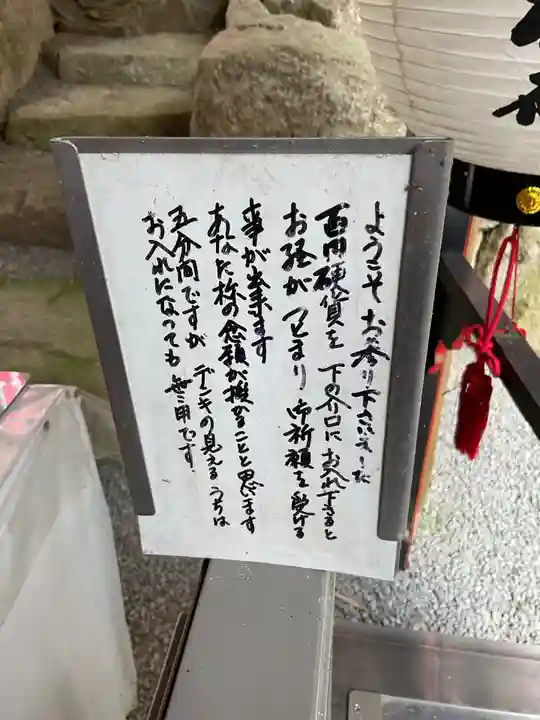 ようこそお参り下さいました
百円硬貨を下の介口にお入れ下さると
お経がはじまり御祈願を受ける
事が出来ます
あなた様の念願が授かることと思います
五分間ですがデンキの見えるうちは
お入れになっても無用です